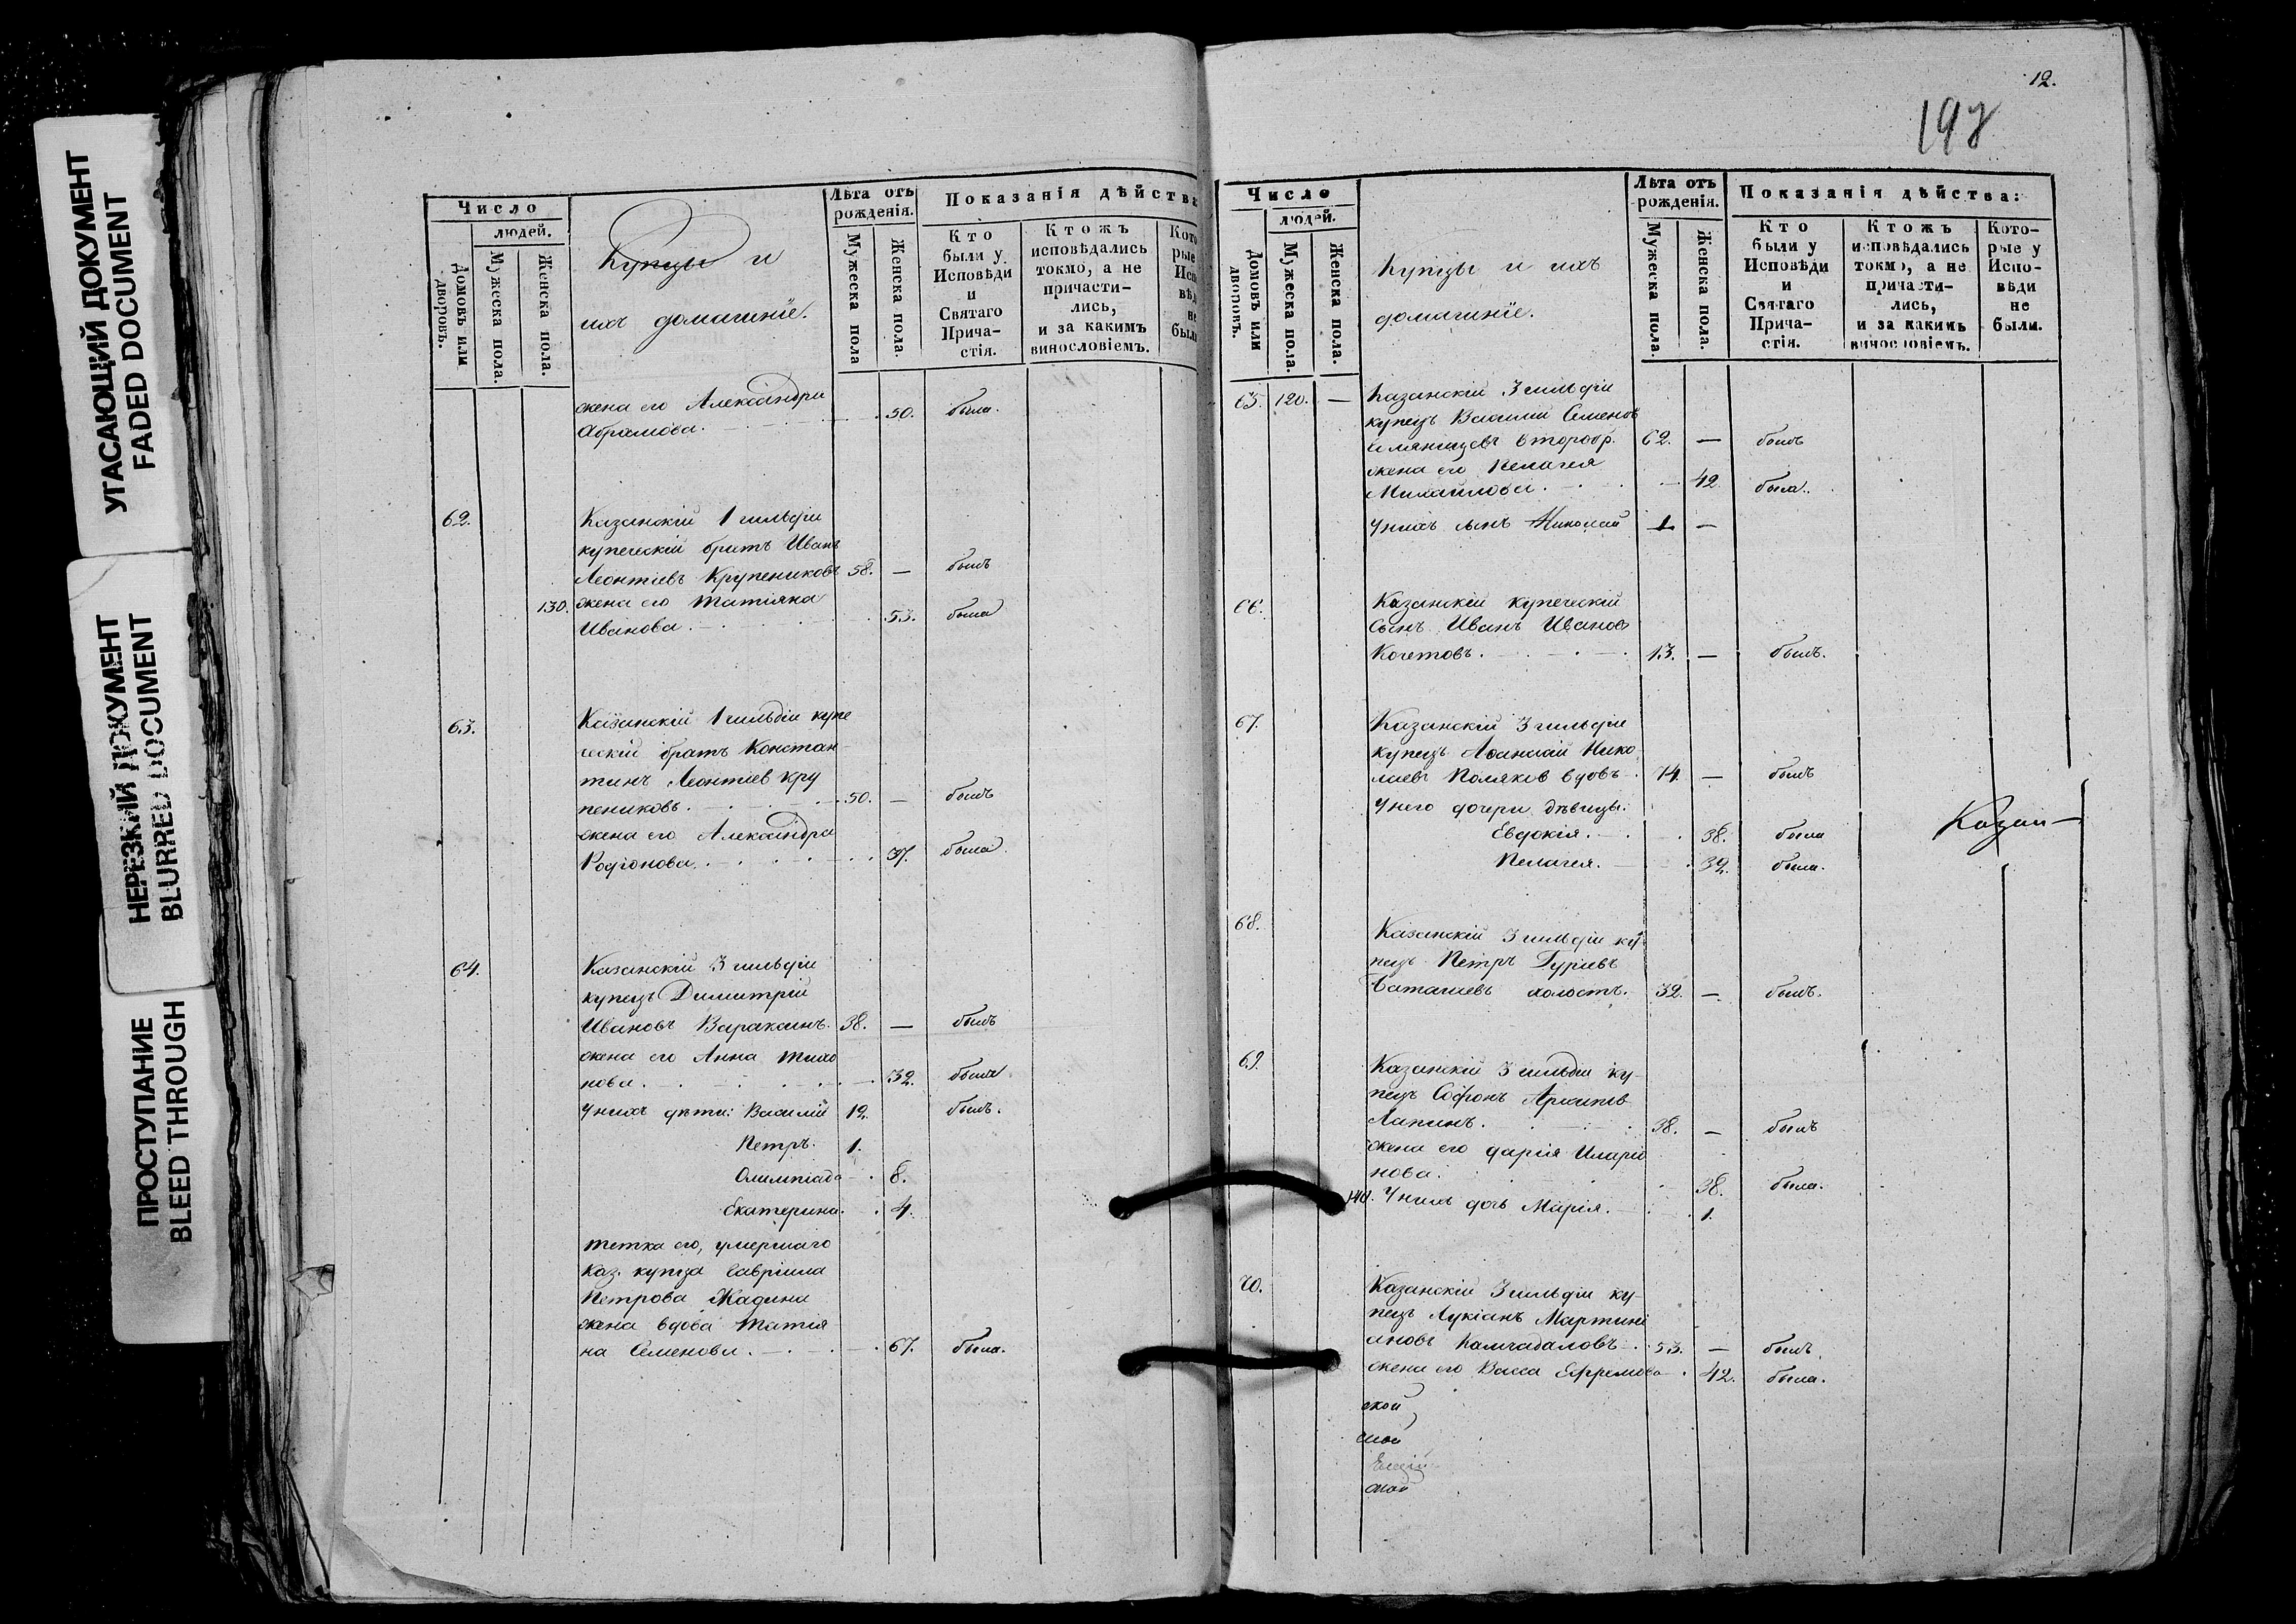 УГАСАЮЩИЙ ДОКУМЕНТ
FADED DOCUMENT
НЕРЕЗКИЙ ДОКУМЕНТ
BLURRED DOCUMENT
ПРОСТУПАНИЕ
BLEED THROUGH
Число
людей.
Домовъ или дворовъ.
Мужеска пола.
Женска пола.
Купцы и
ихъ домашніе.
Лѣта отъ рожденія.
Мужеска пола
Женска пола.
Показанія дѣйства
Кто были у Исповѣди и Святаго Прича- стія.
Ктожъ исповѣдались токмо, а не причасти- лись, и за какимъ винословіемъ.
жена его Александра
Абрамова. 50. была.
62. Казанскій 1 гильдіи
купеческій братъ Иванъ
Леонтіевъ Крупениковъ 58. — былъ
130. жена его Татіяна
Иванова. 53. была
63. Казанскій 1 гильдіи купе
ческій братъ Констан
тинъ Леонтіев Кру
пениковъ. 50. — былъ
жена его Александра
Родіонова. 37. была
64. Казанскій 3 гильдіи
купецъ Димитрій
Ивановъ Вараксинъ. 38. — былъ
жена его Анна Тихо
нова. 32. была
У нихъ дѣти: Василій 12. былъ.
Петръ. 1.
Олимпіада 8.
Екатерина. 4.
тетка его, умершаго
Каз. купца Гавріила
Петрова Жадина
жена вдова Татія
на Семенова. 67. была.
12.
197
Число
людей.
Домовъ или дворовъ.
Мужеска пола.
Женска пола.
Купцы и ихъ
домашніе.
Лѣта отъ рожденія.
Мужеска пола.
Женска пола.
Показанія дѣйства:
Кто были у Исповѣди и Святаго Прича- стія.
Ктожъ исповѣдались токмо, а не причасти- лись, и за какимъ винословіемъ.
Кото- рые у Испо- вѣди не были.
65. 120. — Казанскій 3 гильдіи
купецъ Василій Семенов
второбр. 62. — былъ
жена его Пелагея
Михайлова. 42. была.
У нихъ сынъ Николай 1 —
66. Казанскій купеческій
Сынъ Иванъ Иванов
Кочетовъ. 13. — былъ.
67. Казанскій 3 гильдіи
купецъ Афанасій Нико
лаевъ Поляков вдовъ. 74. — былъ
У него дочери дѣвицы:
Евдокія. 38. была
Пелагея. 32. была.
Казан—
68. Казанскій 3 гильдіи ку
пецъ Петръ Гурьевъ
холостъ. 32. — былъ.
69. Казанскій 3 гильдіи ку-
пецъ Софонъ Архипов
Лапинъ. 38. — былъ
жена его Дарія Иларіо
нова. 38. была.
140. У нихъ дочь Марія. 1.
70. Казанскій 3 гильдіи ку-
пецъ Лукіанъ Мартині
ановъ Камчадаловъ. 53. — былъ
жена его Васса Ефремова 42. была.